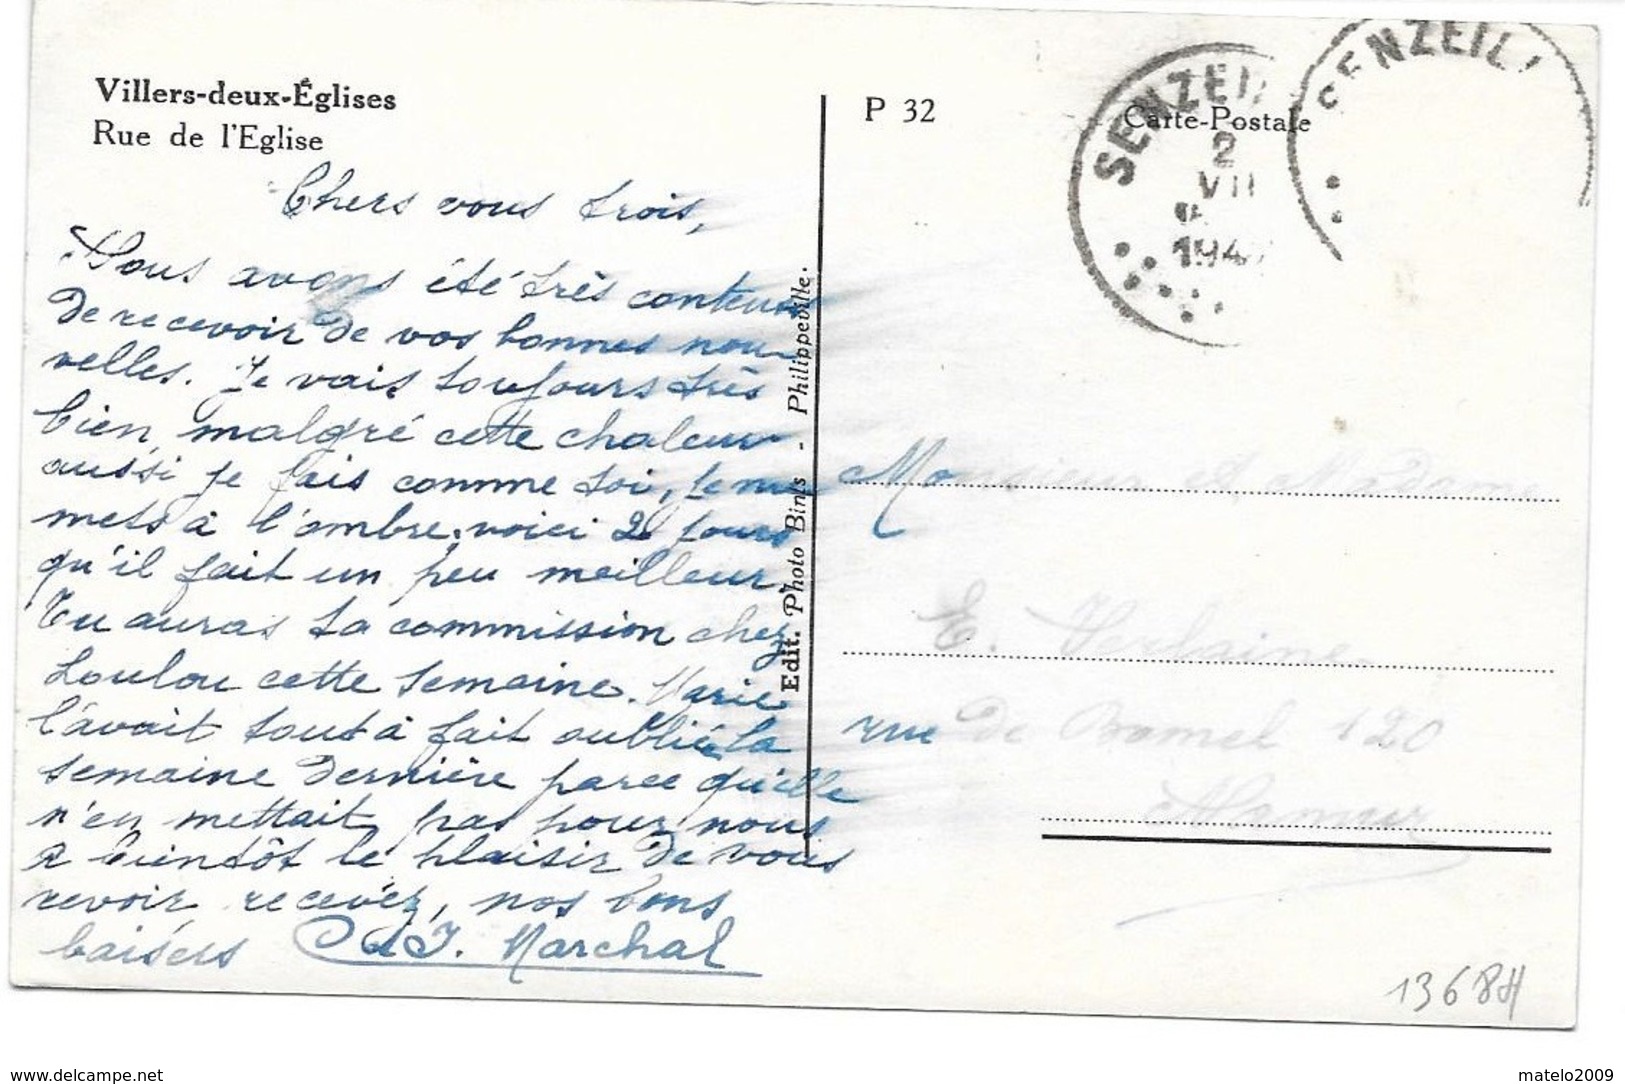 Villers-deux-Églises
Rue de l'Eglise
P 32
Carte-Postale
SENZEIL
2
VII
194
SENZEILL
Chers vous trois,
Nous avons été très contents
de recevoir de vos bonnes nou
velles. Je vais toujours très
bien, malgré cette chaleur
aussi je fais comme toi, je me
mets à l'ombre, voici 2 jours
qu'il fait un peu meilleur.
Tu auras ta commission chez
Loulou cette semaine. Marie
l'avait tout à fait oublié la
semaine dernière parce qu'elle
n'en mettait pas pour nous
à bientôt le plaisir de vous
revoir recevez, nos bons
baisers C et J. Marchal
Edit. Photo Bints - Philippeville.
Monsieur et Madame
E. Verlaine
rue de Bomel 120
Namur
1368H
delcampe.net
matelo2009